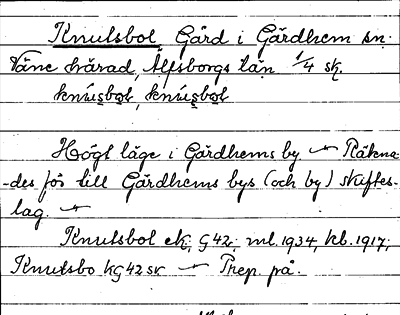 Knutsbol, Gård i Gärdhem sn.
Väne härad, Älfsborgs län 1/4 sk.
Högt läge i Gärdhems by. — Räkna-
-des för till Gärdhems bys (och by) skiftes-
lag. —
Knutsbol ek, G42; ml. 1934, kb. 1917;
Knutsbo kG42sk — Prep. på.